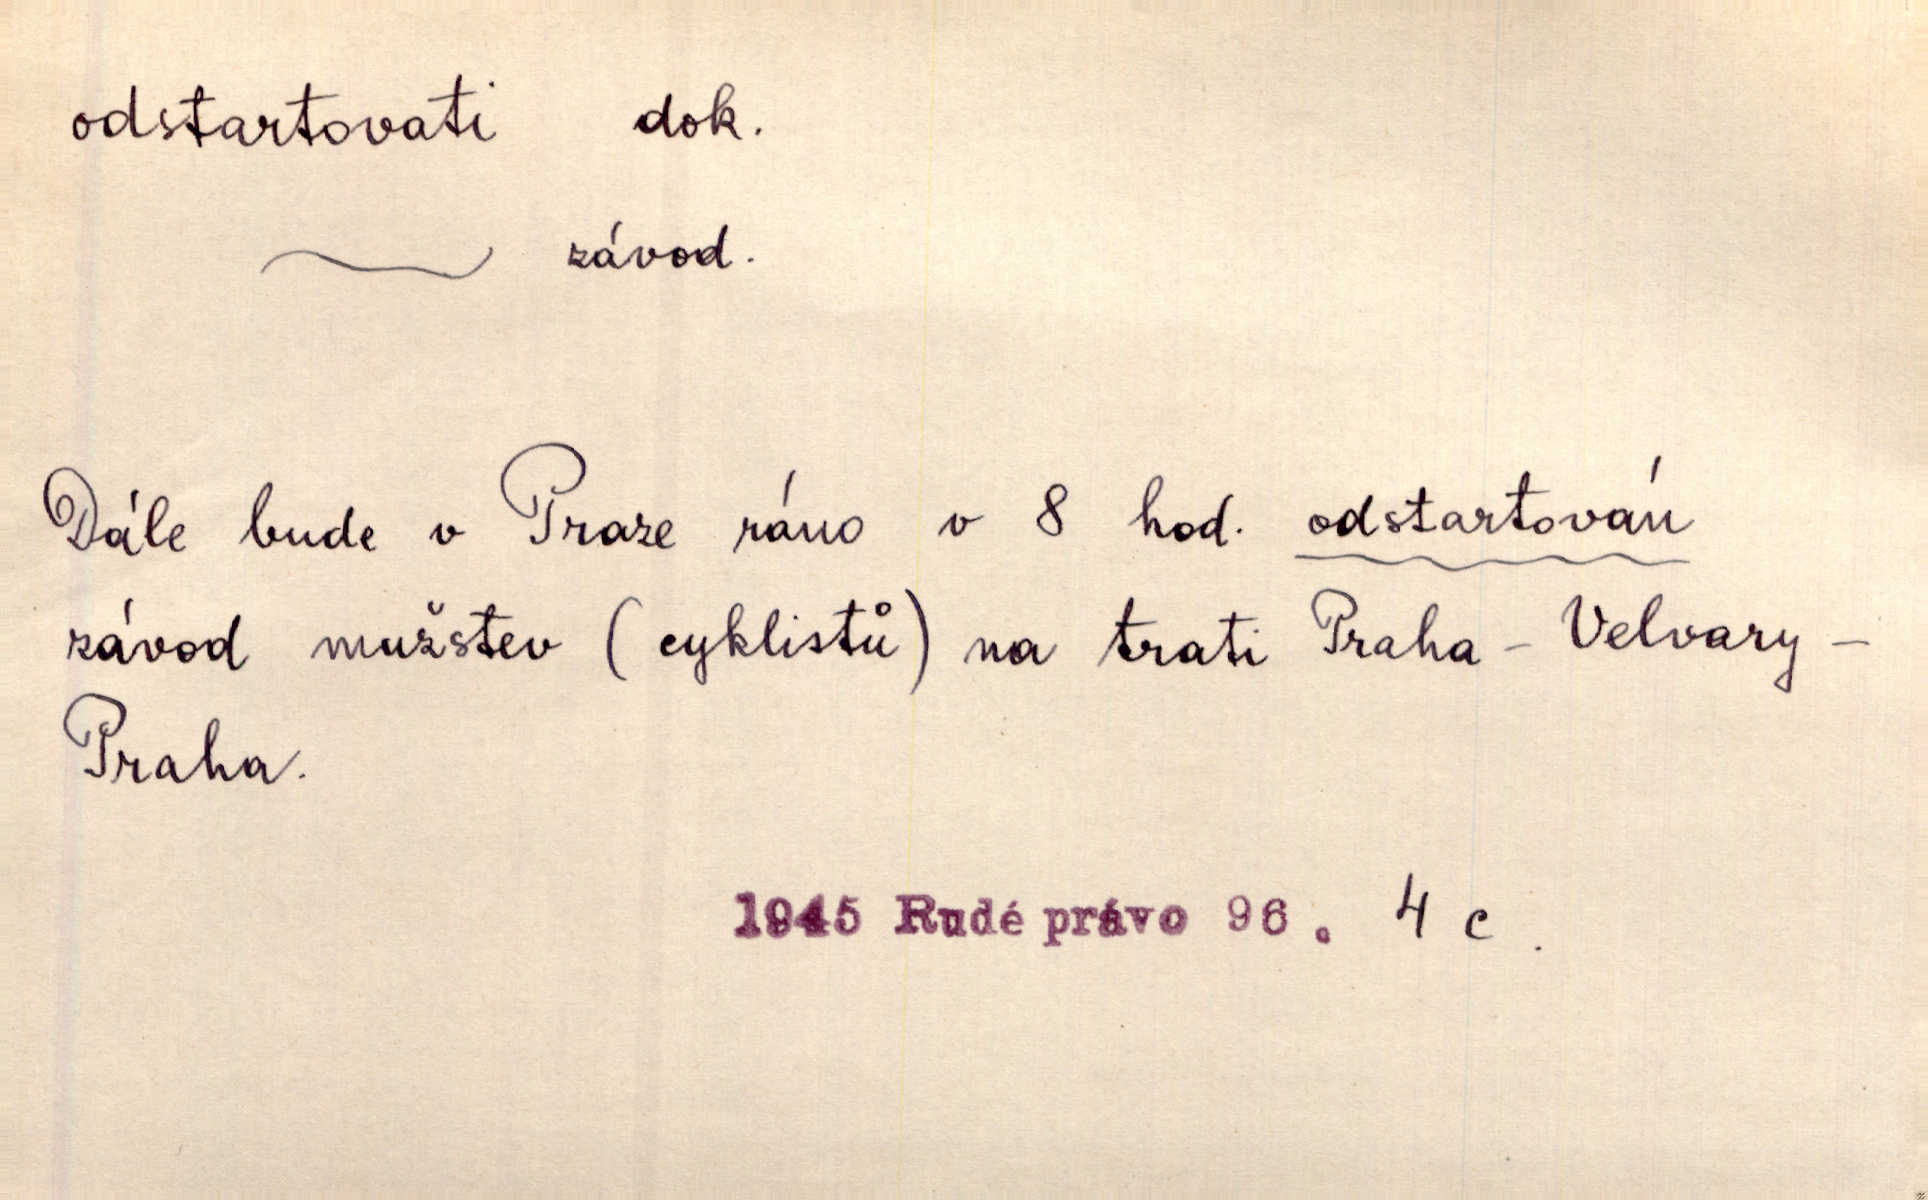 odstartovati dok.
~ závod.
Dále bude v Praze ráno v 8 hod. odstartován
závod mužstev (cyklistů) na trati Praha - Velvary -
Praha.
1945 Rudé právo 96. 4 c.